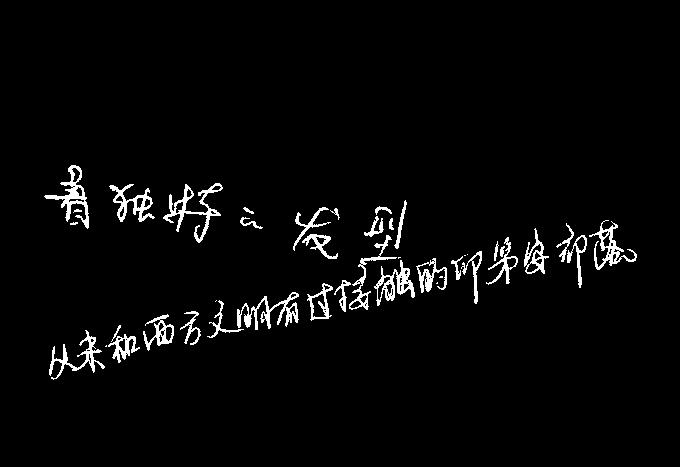 着独特之发型
从未和西方文明有过接触的印第安部落